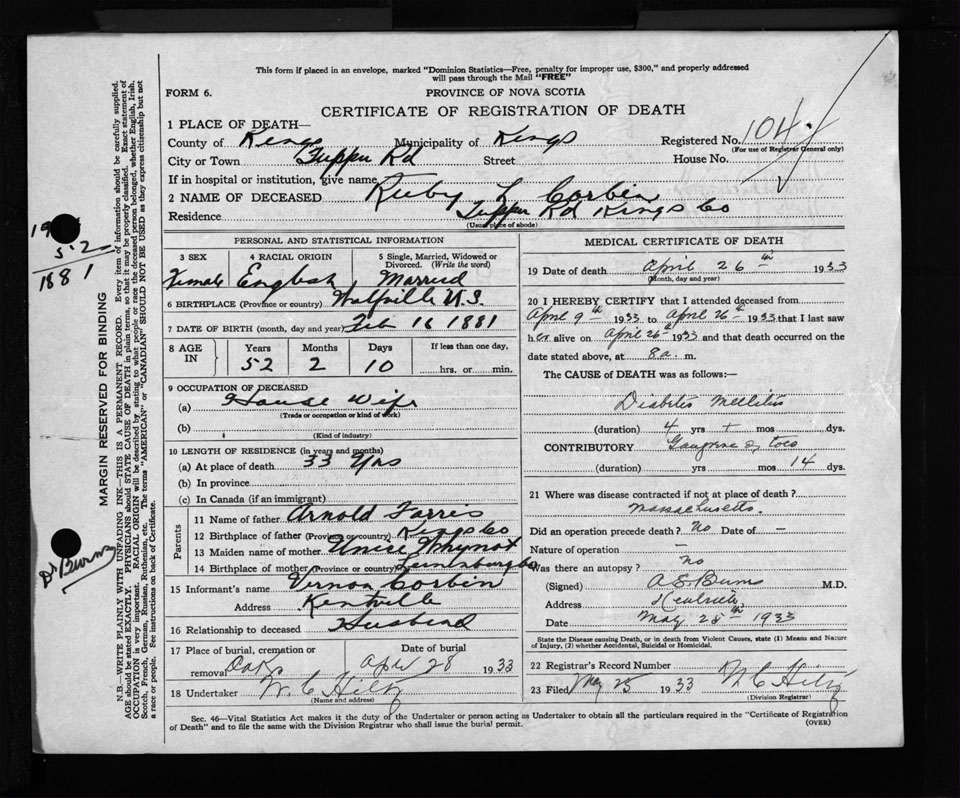 This form if placed in an envelope, marked "Dominion Statistics—Free, penalty for improper use, $300," and properly addressed
will pass through the Mail "FREE"
FORM 6. PROVINCE OF NOVA SCOTIA
CERTIFICATE OF REGISTRATION OF DEATH
1 PLACE OF DEATH—
County of Kings Municipality of Kings Registered No. 104
(For use of Registrar General only)
City or Town Tupper Rd Street House No.
If in hospital or institution, give name
2 NAME OF DECEASED Ruby L Corbin
Residence Tupper Rd Kings Co
(Usual place of abode)
PERSONAL AND STATISTICAL INFORMATION
3 SEX 4 RACIAL ORIGIN 5 Single, Married, Widowed or Divorced. (Write the word)
Female English Married
6 BIRTHPLACE (Province or country) Wolfville N.S.
7 DATE OF BIRTH (month, day and year) Feb 16 1881
8 AGE IN Years Months Days If less than one day,
52 2 10 hrs. or min.
9 OCCUPATION OF DECEASED
(a) House Wife
(Trade or occupation or kind of work)
(b)
(Kind of industry)
10 LENGTH OF RESIDENCE (in years and months)
(a) At place of death 33 Yrs
(b) In province
(c) In Canada (if an immigrant)
Parents
11 Name of father Arnold Farris
12 Birthplace of father (Province or country) Kings Co
13 Maiden name of mother Unice Whynot
14 Birthplace of mother (Province or country) Lunenburg Co
15 Informant's name Vernon Corbin
Address Kentville
16 Relationship to deceased Husband
17 Place of burial, cremation or removal Date of burial
April 28 1933
18 Undertaker W. C Hiltz
(Name and address)
MEDICAL CERTIFICATE OF DEATH
19 Date of death April 26th 1933
(Month, day and year)
20 I HEREBY CERTIFY that I attended deceased from
April 9th 1933 to April 26th 1933 that I last saw
her alive on April 26th 1933 and that death occurred on the
date stated above, at 8 a. m.
The CAUSE of DEATH was as follows:—
Diabetis Mellitis
(duration) 4 yrs + mos dys.
CONTRIBUTORY Gangrene of toes
(duration) yrs mos 14 dys.
21 Where was disease contracted if not at place of death?
Massachusetts.
Did an operation precede death? No Date of —
Nature of operation —
Was there an autopsy? no
(Signed) A. S. Burns M.D.
Address Kentville
Date May 25th 1933
State the Disease causing Death, or in death from Violent Causes, state (1) Means and Nature
of Injury, (2) whether Accidental, Suicidal or Homicidal.
22 Registrar's Record Number
23 Filed May 25 1933 W C Hiltz
(Division Registrar)
Sec. 46—Vital Statistics Act makes it the duty of the Undertaker or person acting as Undertaker to obtain all the particulars required in the "Certificate of Registration
of Death" and to file the same with the Division Registrar who shall issue the burial permit.
(OVER)
MARGIN RESERVED FOR BINDING
N.B.—WRITE PLAINLY WITH UNFADING INK—THIS IS A PERMANENT RECORD. Every item of information should be carefully supplied.
AGE should be stated EXACTLY. PHYSICIANS should STATE CAUSE OF DEATH in plain terms, so that it may be properly classified. Exact statement of
OCCUPATION is very important. RACIAL ORIGIN will be described by stating to what people or race the deceased person belonged, whether English, Irish,
Scotch, French, German, Russian, Ruthenian, etc. The terms "AMERICAN" or "CANADIAN" SHOULD NOT BE USED as they express citizenship but not
a race or people. See instructions on back of Certificate.
52
1881
Dr Burns